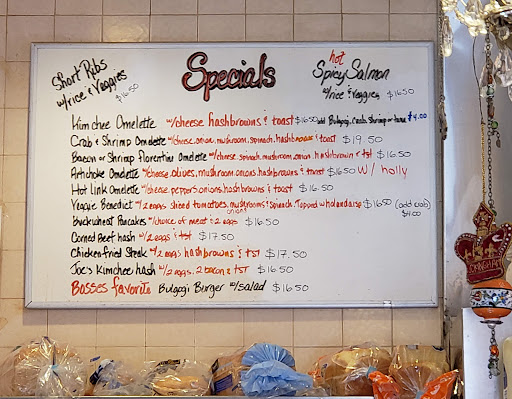 Specials
Short Ribs
w/rice & veggies
$16.50
hot
Spicy Salmon
w/rice & veggies $16.50
Kimchee Omelette w/cheese hashbrowns & toast $16.50 add Bulgogi, crab, shrimp or tuna $4.00
Crab & Shrimp Omelette w/cheese, onion, mushroom, spinach, hashbrowns & toast $19.50
Bacon or Shrimp Florentine Omelette w/cheese, spinach, mushroom, onion, hashbrown & tst $16.50
Artichoke Omelette w/cheese, olives, mushroom, onions, hashbrowns & toast $16.50 w/ holly
Hot Link Omelette w/cheese, peppers, onions, hashbrowns & toast $16.50
Veggie Benedict w/2 eggs sliced tomatoes, mushrooms & spinach. Topped w/holandaise $16.50 (add crab)
onions
$4.00
buckwheat Pancakes w/choice of meat & 2 eggs $16.50
Corned Beef hash w/2 eggs & tst $17.50
Chicken fried Steak w/2 eggs hashbrowns & tst $17.50
Joe's Kimchee hash w/2 eggs, 2 bacon & tst $16.50
Bosses favorite Bulgogi Burger w/salad $16.50